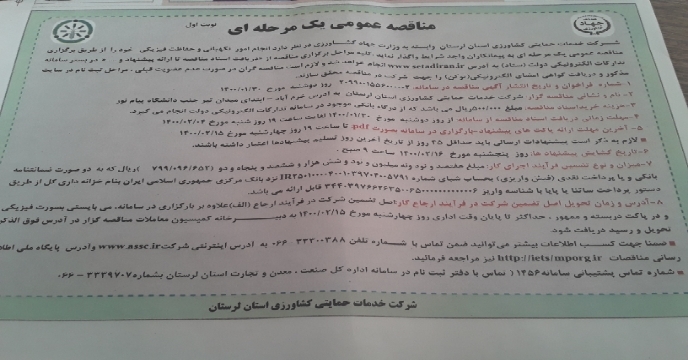 نوبت اول
مناقصه عمومی یک مرحله ای
شرکت خدمات حمایتی کشاورزی استان لرستان وابسته به وزارت جهاد کشاورزی در نظر دارد انجام امور نگهبانی و حفاظت فیزیکی خود را از طریق برگزاری
مناقصه عمومی یک مرحله ای به پیمانکاران واجد شرایط واگذار نماید. کلیه مراحل برگزاری مناقصه از دریافت اسناد مناقصه تا ارائه پیشنهاد و در بستر سامانه
تدارکات الکترونیکی دولت (ستاد) به آدرس www.setadiran.ir انجام خواهد شد و لازم است مناقصه گران در صورت عدم عضویت قبلی، مراحل ثبت نام در سایت
مذکور و دریافت گواهی امضای الکترونیکی(توکن) را جهت شرکت در مناقصه محقق سازند.
۱-شماره فراخوان و تاریخ انتشار آگهی مناقصه در سامانه: روز دوشنبه مورخ ۱۴۰۰/۰۱/۳۰
۲-نام و نشانی مناقصه گزار: شرکت خدمات حمایتی کشاورزی استان لرستان به آدرس خرم آباد - ابتدای میدان تیر جنب دانشگاه پیام نور
۳-هزینه خرید اسناد مناقصه: مبلغ ۵۰۰/۰۰۰ریال می باشد که از درگاه بانکی موجود در سامانه تدارکات الکترونیکی دولت انجام می گیرد.
۴-مهلت زمانی دریافت اسناد مناقصه از سامانه: از روز دوشنبه مورخ ۱۴۰۰/۰۱/۳۰ لغایت ساعت ۱۹ روز شنبه مورخ ۱۴۰۰/۰۲/۰۴
۵-آخرین مهلت ارائه پاکت های پیشنهاد-بارگزاری در سامانه بصورت pdf: تا ساعت ۱۹ روز چهارشنبه مورخ ۱۴۰۰/۰۲/۱۵
لازم به ذکر است پیشنهادات ارسالی باید حداقل ۲۵ روز از تاریخ آخرین روز تسلیم پیشنهادها اعتبار داشته باشند.
۶-تاریخ گشایش پیشنهاد ها: روز پنجشنبه مورخ ۱۴۰۰/۰۲/۱۶ ساعت ۹ صبح.
۷-میزان و نوع تضمین فرآیند اجرای کار: مبلغ هفتصد و نود ونه میلیون و نود و شش هزار و ششصد و پنجاه و دو (۷۹۹/۰۹۶/۶۵۲)ریال که به دو صورت ضمانتنامه
بانکی و یا پرداخت نقدی (فیش واریزی) بحساب شبای شماره نزد بانک مرکزی جمهوری اسلامی ایران بنام خزانه داری کل از طریق
دستور پرداخت ساتنا یا پایا با شناسه واریز قابل ارائه می باشد.
۸-آدرس و زمان تحویل اصل تضمین شرکت در فرآیند ارجاع کار: اصل تضمین شرکت در فرآیند ارجاع (الف)علاوه بر بارگزاری در سامانه، می بایستی بصورت فیزیکی
و در پاکت دربسته و ممهور، حداکثر تا پایان وقت اداری روز چهارشنبه مورخ ۱۴۰۰/۰۲/۱۵ به دبیرخانه کمیسیون معاملات مناقصه گزار در آدرس فوق الذکر
تحویل و رسید دریافت شود.
ضمنا جهت کسب اطلاعات بیشتر می توانید ضمن تماس با شماره تلفن ۳۳۲۰۰۳۸۸-۰۶۶ به آدرس اینترنتی شرکت www.assc.ir وآدرس پایگاه ملی اطلاع
رسانی مناقصات http://iets/mporg.ir نیز مراجعه فرمائید.
شماره تماس پشتیبانی سامانه۱۴۵۶ ( تماس با دفتر ثبت نام در سامانه اداره کل صنعت، معدن و تجارت استان لرستان بشماره۳۳۲۹۷۰۷-۰۶۶
شرکت خدمات حمایتی کشاورزی استان لرستان